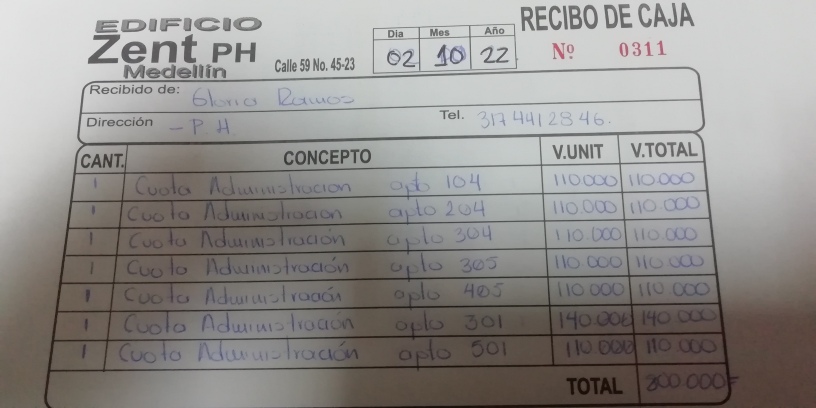 EDIFICIO
Zent PH
Medellín
Calle 59 No. 45-23
Dia Mes Año
02 10 22
RECIBO DE CAJA
Nº 0311
Recibido de: Gloria Ramos
Dirección - P.H Tel. 3174412846.
CANT. CONCEPTO V.UNIT V.TOTAL
1 Cuota Administracion apto 104 110000 110.000
1 Cuota Administración apto 204 110.000 110 000
1 Cuota Administración apto 304 110.000 110.000
1 Cuota Administración apto 305 110.000 110.000
1 Cuota Administración apto 405 110 000 110 000
1 Cuota Administración apto 301 140.000 140 000
1 Cuota Administración apto 501 110 000 110 000
TOTAL 800.000